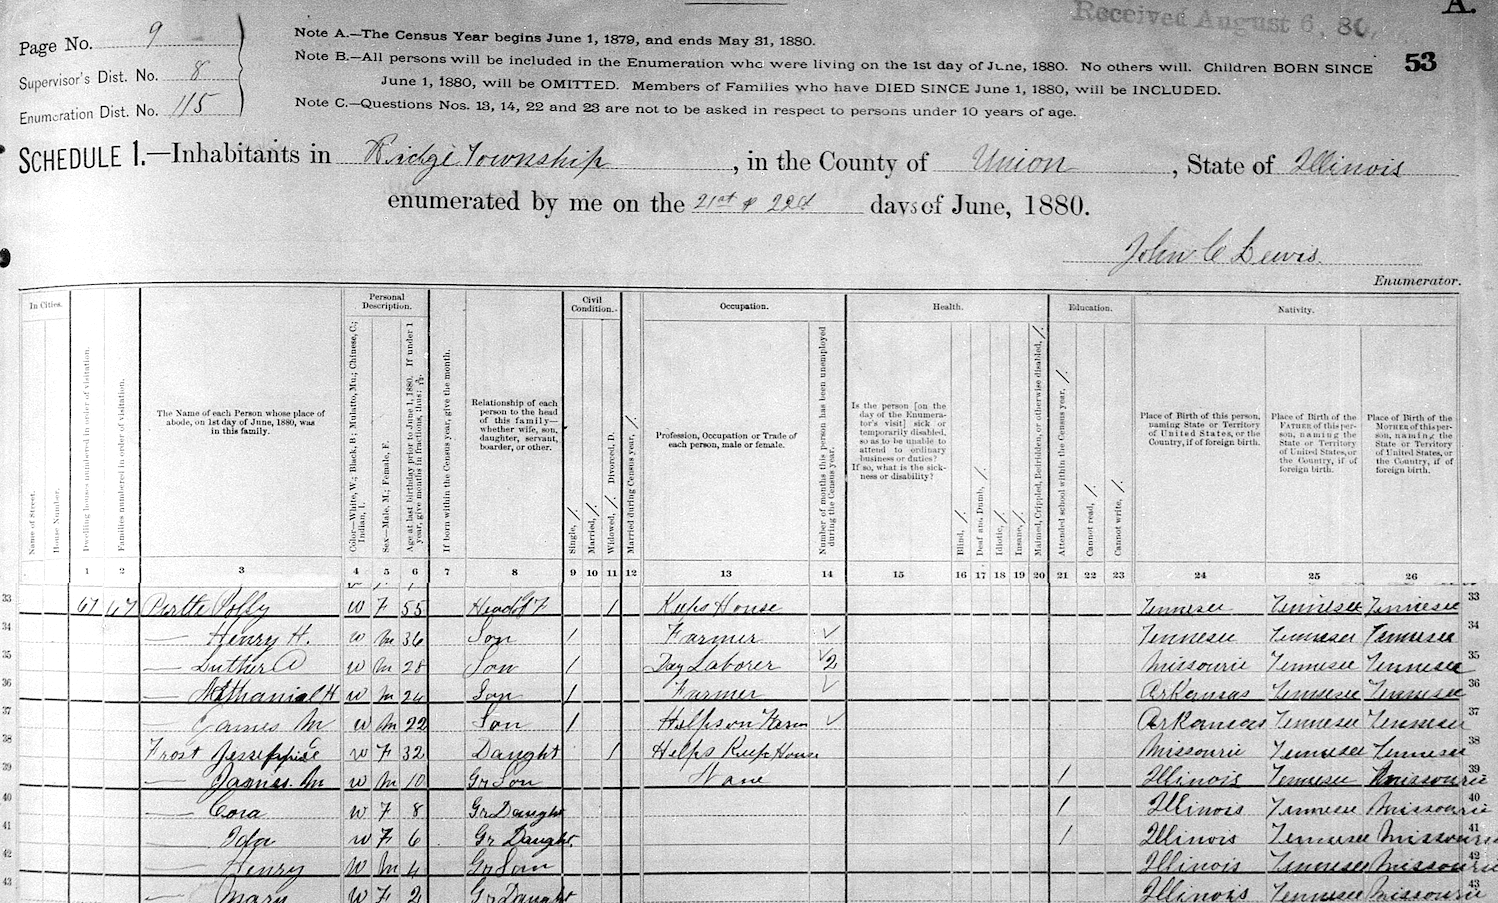 A.
Received August 6, 80.
Page No. 9
Supervisor's Dist. No. 8
Enumeration Dist. No. 115
Note A.—The Census Year begins June 1, 1879, and ends May 31, 1880.
Note B.—All persons will be included in the Enumeration who were living on the 1st day of June, 1880. No others will. Children BORN SINCE
June 1, 1880, will be OMITTED. Members of Families who have DIED SINCE June 1, 1880, will be INCLUDED.
Note C.—Questions Nos. 13, 14, 22 and 23 are not to be asked in respect to persons under 10 years of age.
53
SCHEDULE 1.—Inhabitants in Ridge Township, in the County of Union, State of Illinois
enumerated by me on the 21st & 22d days of June, 1880.
John C Lewis.
Enumerator.
In Cities. Personal Description. Civil Condition. Occupation. Health. Education. Nativity.
Name of Street.
House Number.
Dwelling houses numbered in order of visitation.
Families numbered in order of visitation.
The Name of each Person whose place of abode, on 1st day of June, 1880, was in this family.
Color—White, W.; Black, B.; Mulatto, Mu.; Chinese, C.; Indian, I.
Sex—Male, M.; Female, F.
Age at last birthday prior to June 1, 1880. If under 1 year, give months in fractions, thus: 3/12.
If born within the Census year, give the month.
Relationship of each person to the head of this family—whether wife, son, daughter, servant, boarder, or other.
Single, /.
Married, /.
Widowed, /. Divorced, D.
Married during Census year, /.
Profession, Occupation or Trade of each person, male or female.
Number of months this person has been unemployed during the Census year.
Is the person [on the day of the Enumerator's visit] sick or temporarily disabled, so as to be unable to attend to ordinary business or duties? If so, what is the sickness or disability?
Blind, /.
Deaf and Dumb, /.
Idiotic, /.
Insane, /.
Maimed, Crippled, Bedridden, or otherwise disabled, /.
Attended school within the Census year, /.
Cannot read, /.
Cannot write, /.
Place of Birth of this person, naming State or Territory of United States, or the Country, if of foreign birth.
Place of Birth of the FATHER of this person, naming the State or Territory of United States, or the Country, if of foreign birth.
Place of Birth of the MOTHER of this person, naming the State or Territory of United States, or the Country, if of foreign birth.
1 2 3 4 5 6 7 8 9 10 11 12 13 14 15 16 17 18 19 20 21 22 23 24 25 26
33 67 67 Polly W F 55 Head of F / Keeps House Tennesee Tennesee Tennesee 33
34 — Henry H. W M 36 Son / Farmer ✓ Tennesee Tennesee Tennesee 34
35 — Luther A W M 28 Son / Day Laborer ✓2 Missourie Tennesee Tennesee 35
36 — Nathanial H W M 24 Son / Farmer ✓ Arkansas Tennesee Tennesee 36
37 — James M W M 22 Son / Helps on Farm ✓ Arkansas Tennesee Tennesee 37
38 Frost W F 32 Daught / Helps Keep House Missourie Tennesee Tennesee 38
39 — James. M W M 10 Gr Son None / Illinois Tennesee Missourie 39
40 — Cora W F 8 Gr Daught / Illinois Tennesee Missourie 40
41 — Ida W F 6 Gr Daught / Illinois Tennesee Missourie 41
42 — Henry W M 4 Gr Son Illinois Tennesee Missourie 42
43 — Mary W F 2 Gr Daught Illinois Tennesee Missourie 43